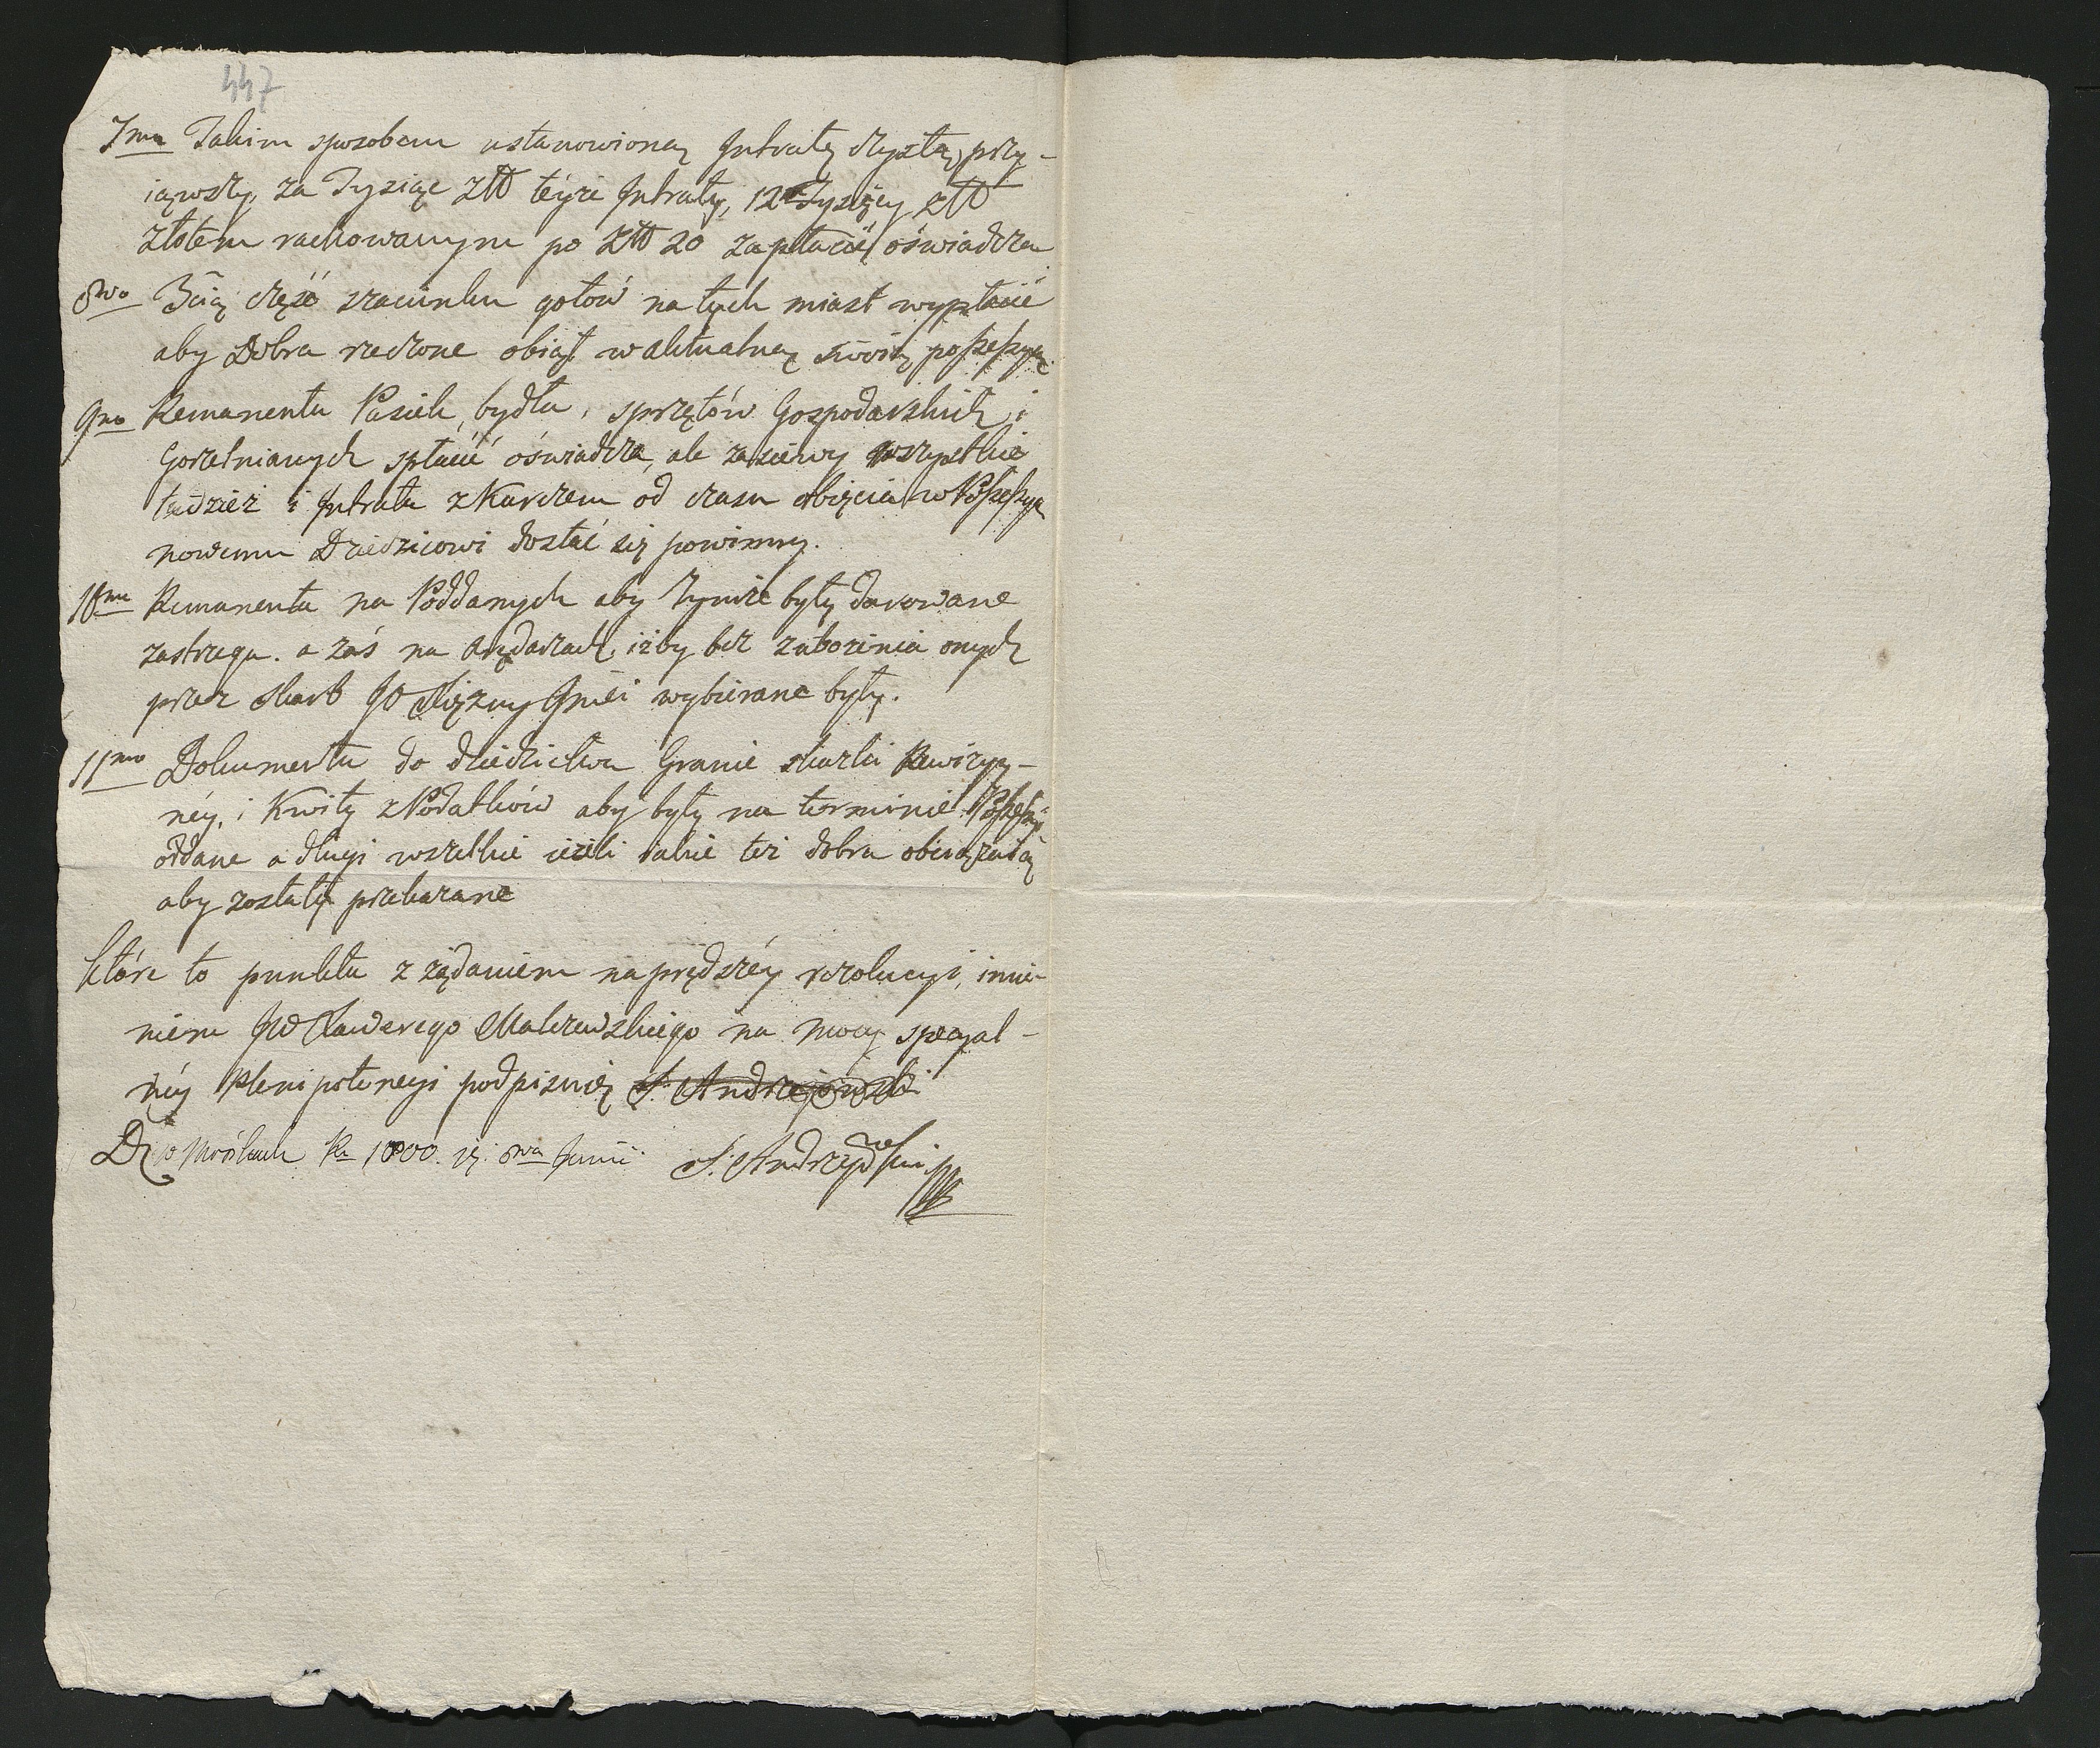 447
7mo Takim sposobem ustanowioną Intratę czystą, przy-
iąwszy, za Tysiąc Złł téyże Intraty, 12 Tysięcy Złł
Złotem rachowanym po Złł 20 zapłacić oświadcza
8vo 3cią część szacunku gotów na tych miast wypłacić
aby Dobra rzeczone obiął w aktualną swoią possessyą
9no Remanenta Pasiek, bydła, sprzętów Gospodarskich i
Gorzelnianych spłacić oświadcza, ale zasiewy wszystkie
tudzież i Intrata z Karczem od czasu obięcia w Possessyą
nowemu Dziedzicowi dostać się powinny.
10mo Remanenta na Poddanych aby Tymże były darowane
zastrzega. a zaś na Arędarzach, iżby bez zubożenia onych
przez skarb JO Xiężny Jmci wybierane były.
11mo Dokumenta do dziedzictwa Granic skazki Rewizyy-
néy, i Kwity z Podatków aby były na terminie Possessyi
oddane a długi wszelkie ieżeli iakie też dobra obciążaią
aby zostały przekazane
które to punkta z żądaniem nayprędszéy rezolucyi, imie-
niem JW Xawerego Malczewskiego na mocy specyal-
néy Plenipotencyi podpisuię S: Andrzejowski
D: w Rku 1800. 8va Junii S: Andrzejowski